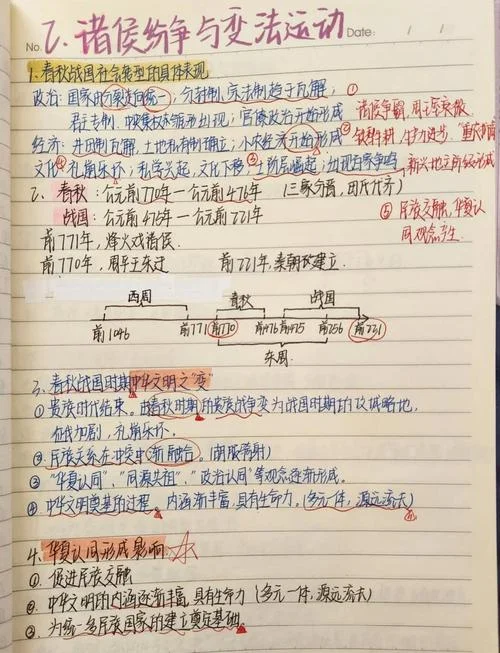 No. 2. 诸侯纷争与变法运动 Date: / /
1. 春秋战国社会转型的具体表现
政治：国家由分裂走向统一；分封制、宗法制趋于瓦解；
君主专制、中央集权初步形成出现；官僚政治开始形成
① 诸侯争霸，周王室衰微
经济：井田制瓦解，土地私有制确立；小农经济开始形成
② 铁犁牛耕，生力进步，"重农抑商"
文化：④礼崩乐坏；私学兴起，文化下移；士阶层崛起；出现百家争鸣
新兴地主阶级形成
2. 春秋：公元前770年—公元前476年 （三家分晋，田氏代齐）
战国：公元前475年—公元前221年
⑤ 民族交融，华夏认同观念产生
前771年，烽火戏诸侯
前770年，周平王东迁 前221年，秦朝建立
西周 春秋 战国
前1046 前771 前770 前476 前475 前256 前221
东周
3. 春秋战国时期中华文明之"变"
① 贵族时代结束。由春秋时期的贵族战争变为战国时期的攻城略地，
征战加剧，礼崩乐坏。
②民族关系在冲突中渐融合。（胡服骑射）
③ "华夏认同"、"同源共祖"、"政治认同"等观念逐渐形成。
④ 中华文明奠基的过程，内涵渐丰富，具有生命力，（多元一体，源远流长）
4. 华夏认同形成影响
①. 促进民族交融
②. 中华文明的内涵逐渐丰富，具有生命力（多元一体，源远流长）
③. 为统一多民族国家的建立奠定基础。